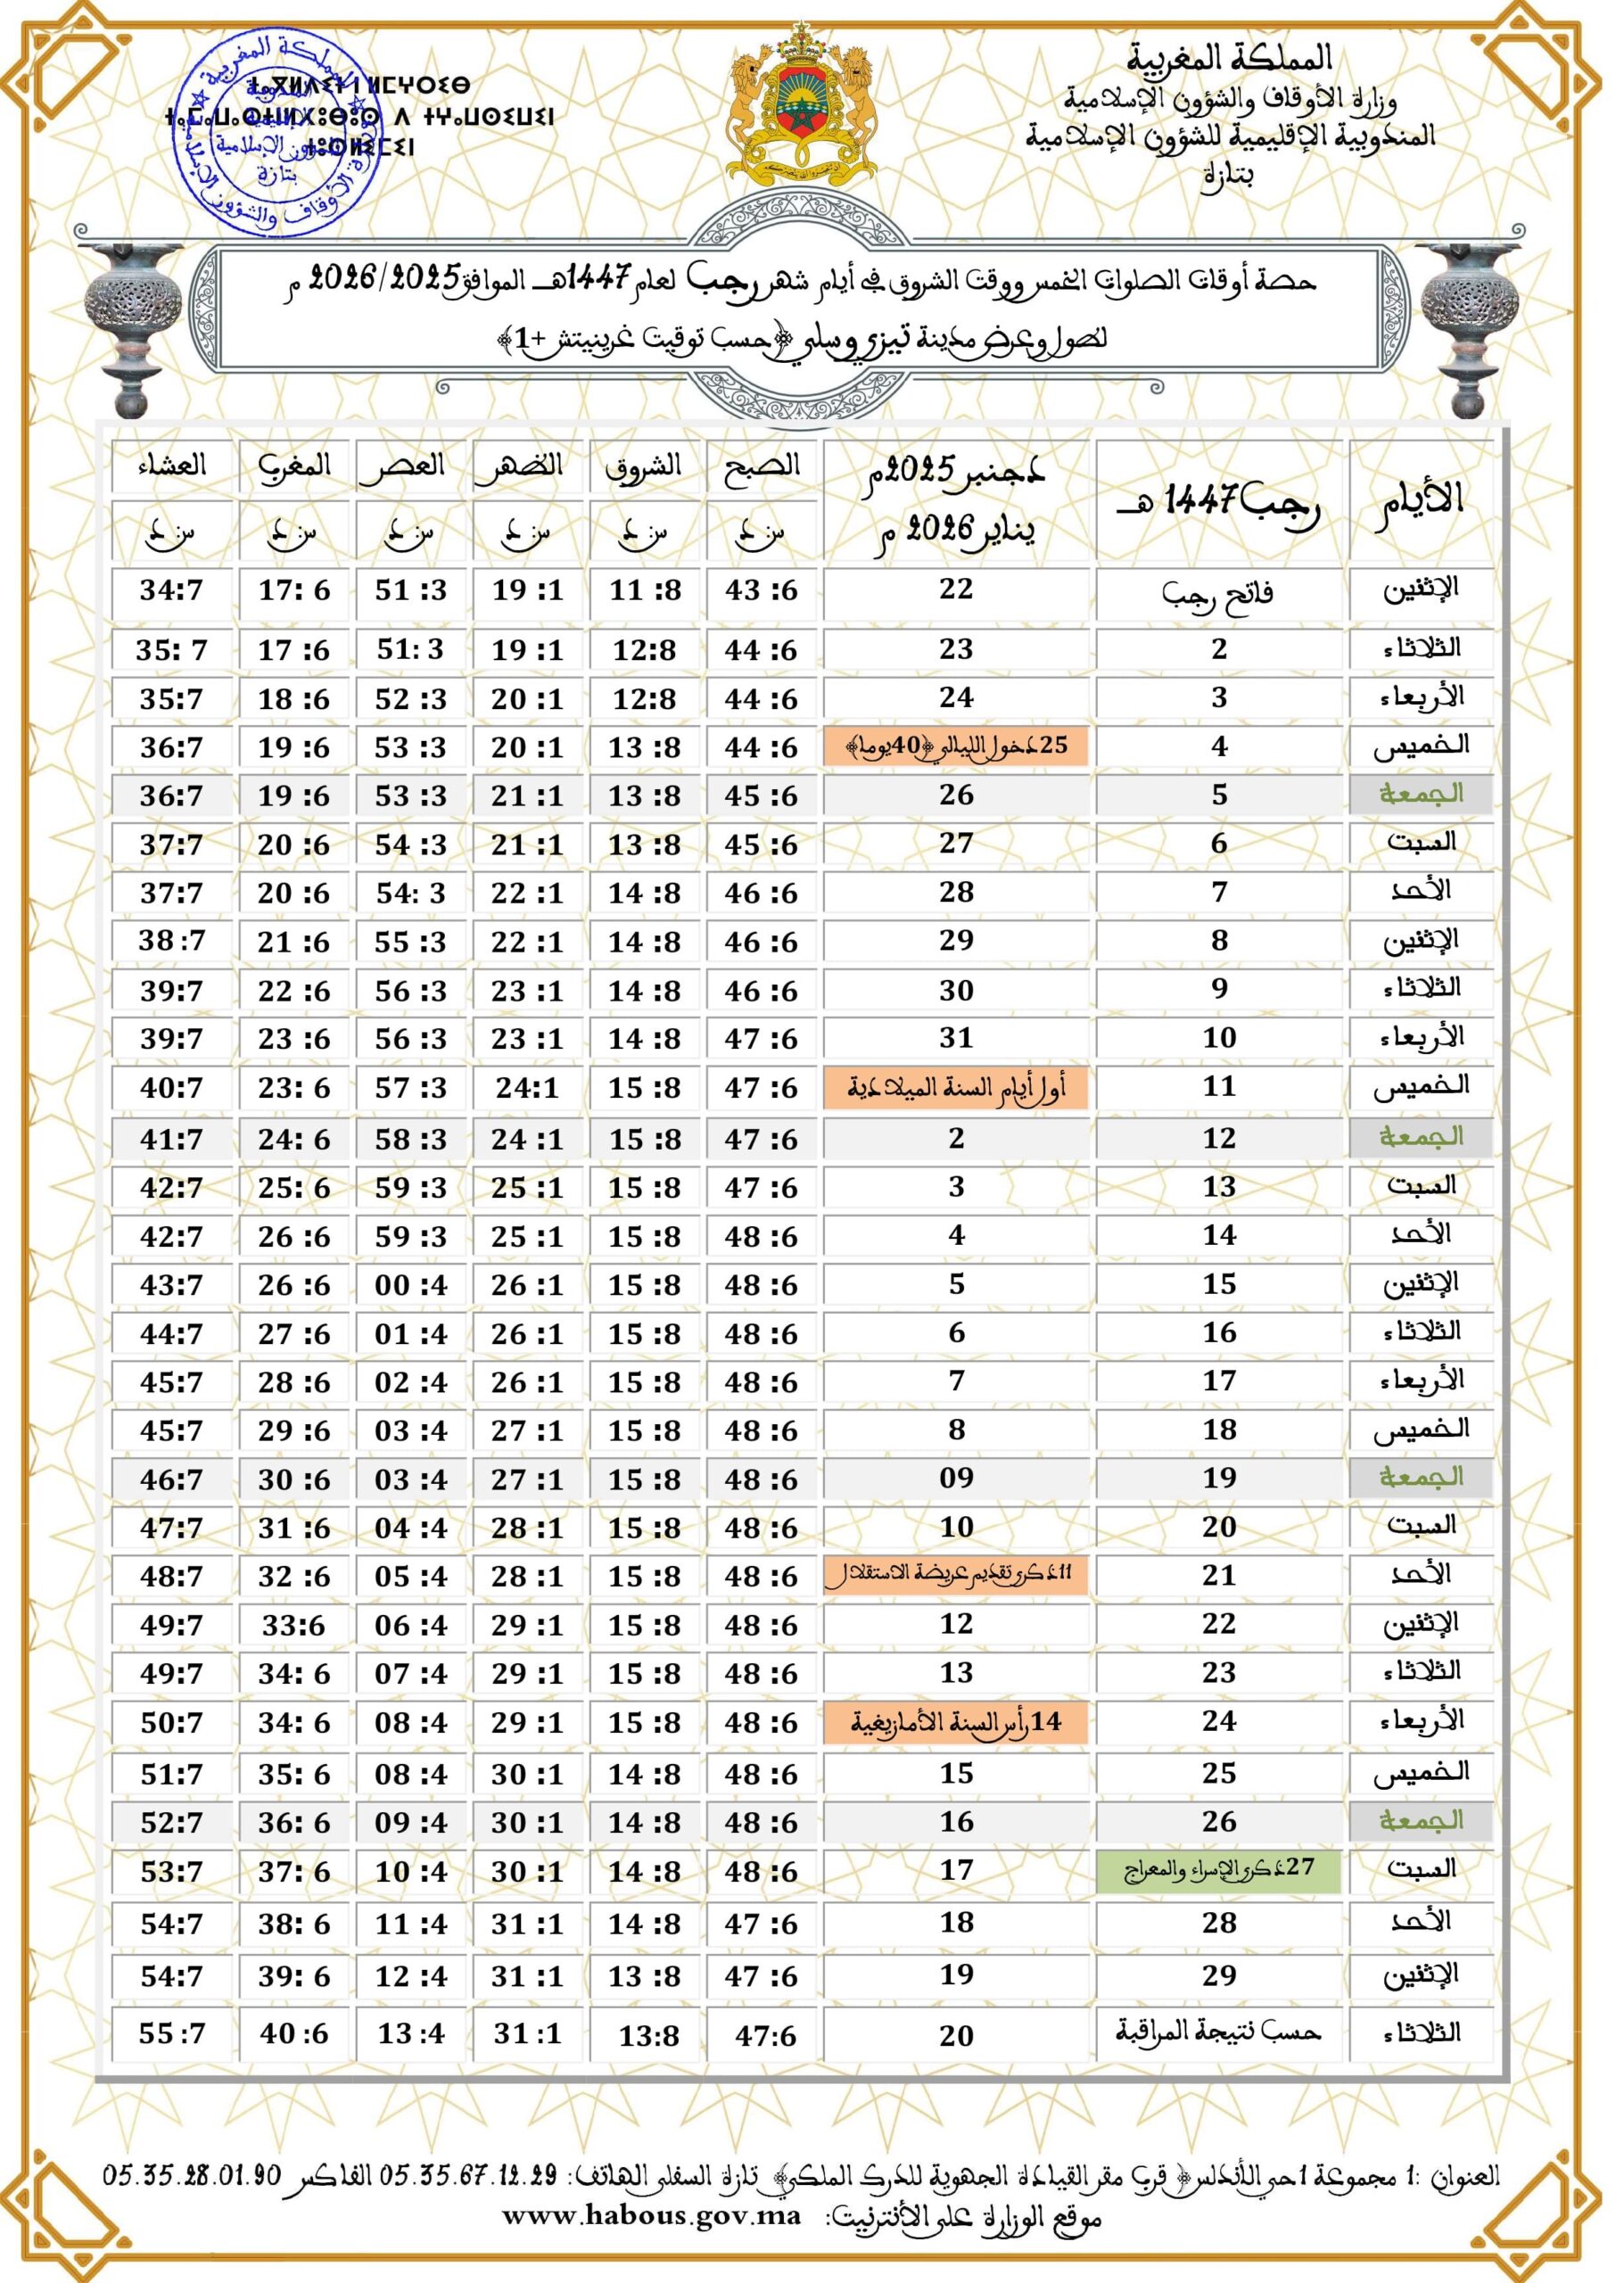 المملكة المغربية
وزارة الأوقاف والشؤون الإسلامية
المندوبية الإقليمية للشؤون الإسلامية
بتازة
ⵜⴰⴳⵍⴷⵉⵜ ⵏ ⵍⵎⵖⵔⵉⴱ
المملكة المغربية
وزارة الأوقاف والشؤون الإسلامية
المندوبية
الإقليمية
للشؤون الإسلامية
بتازة
حصة أوقات الصلوات الخمس ووقت الشروق في أيام شهر رجب لعام 1447هـ الموافق 2026/2025 م
لطول وعرض مدينة تيزي وسلي ﴿حسب توقيت غرينيتش +1﴾
الأيام | رجب 1447 هـ | دجنبر 2025م يناير 2026 م | الصبح | الشروق | الظهر | العصر | المغرب | العشاء
س: د | س: د | س: د | س: د | س: د | س: د
الإثنين | فاتح رجب | 22 | 43 :6 | 11 :8 | 19 :1 | 51 :3 | 17: 6 | 34:7
الثلاثاء | 2 | 23 | 44 :6 | 12:8 | 19 :1 | 51: 3 | 17 :6 | 35: 7
الأربعاء | 3 | 24 | 44 :6 | 12:8 | 20 :1 | 52 :3 | 18 :6 | 35:7
الخميس | 4 | 25دخول الليالي ﴿40يوما﴾ | 44 :6 | 13 :8 | 20 :1 | 53 :3 | 19 :6 | 36:7
الجمعة | 5 | 26 | 45 :6 | 13 :8 | 21 :1 | 53 :3 | 19 :6 | 36:7
السبت | 6 | 27 | 45 :6 | 13 :8 | 21 :1 | 54 :3 | 20 :6 | 37:7
الأحد | 7 | 28 | 46 :6 | 14 :8 | 22 :1 | 54: 3 | 20 :6 | 37:7
الإثنين | 8 | 29 | 46 :6 | 14 :8 | 22 :1 | 55 :3 | 21 :6 | 38 :7
الثلاثاء | 9 | 30 | 46 :6 | 14 :8 | 23 :1 | 56 :3 | 22 :6 | 39:7
الأربعاء | 10 | 31 | 47 :6 | 14 :8 | 23 :1 | 56 :3 | 23 :6 | 39:7
الخميس | 11 | أول أيام السنة الميلادية | 47 :6 | 15 :8 | 24:1 | 57 :3 | 23: 6 | 40:7
الجمعة | 12 | 2 | 47 :6 | 15 :8 | 24 :1 | 58 :3 | 24: 6 | 41:7
السبت | 13 | 3 | 47 :6 | 15 :8 | 25 :1 | 59 :3 | 25: 6 | 42:7
الأحد | 14 | 4 | 48 :6 | 15 :8 | 25 :1 | 59 :3 | 26 :6 | 42:7
الإثنين | 15 | 5 | 48 :6 | 15 :8 | 26 :1 | 00 :4 | 26 :6 | 43:7
الثلاثاء | 16 | 6 | 48 :6 | 15 :8 | 26 :1 | 01 :4 | 27 :6 | 44:7
الأربعاء | 17 | 7 | 48 :6 | 15 :8 | 26 :1 | 02 :4 | 28 :6 | 45:7
الخميس | 18 | 8 | 48 :6 | 15 :8 | 27 :1 | 03 :4 | 29 :6 | 45:7
الجمعة | 19 | 09 | 48 :6 | 15 :8 | 27 :1 | 03 :4 | 30 :6 | 46:7
السبت | 20 | 10 | 48 :6 | 15 :8 | 28 :1 | 04 :4 | 31 :6 | 47:7
الأحد | 21 | 11ذكرى تقديم عريضة الاستقلال | 48 :6 | 15 :8 | 28 :1 | 05 :4 | 32 :6 | 48:7
الإثنين | 22 | 12 | 48 :6 | 15 :8 | 29 :1 | 06 :4 | 33:6 | 49:7
الثلاثاء | 23 | 13 | 48 :6 | 15 :8 | 29 :1 | 07 :4 | 34: 6 | 49:7
الأربعاء | 24 | 14رأس السنة الأمازيغية | 48 :6 | 15 :8 | 29 :1 | 08 :4 | 34: 6 | 50:7
الخميس | 25 | 15 | 48 :6 | 14 :8 | 30 :1 | 08 :4 | 35: 6 | 51:7
الجمعة | 26 | 16 | 48 :6 | 14 :8 | 30 :1 | 09 :4 | 36: 6 | 52:7
السبت | 27ذكرى الإسراء والمعراج | 17 | 48 :6 | 14 :8 | 30 :1 | 10 :4 | 37: 6 | 53:7
الأحد | 28 | 18 | 47 :6 | 14 :8 | 31 :1 | 11 :4 | 38: 6 | 54:7
الإثنين | 29 | 19 | 47 :6 | 13 :8 | 31 :1 | 12 :4 | 39: 6 | 54:7
الثلاثاء | حسب نتيجة المراقبة | 20 | 47:6 | 13:8 | 31 :1 | 13 :4 | 40 :6 | 55 :7
العنوان :1 مجموعة 1حي الأندلس﴿ قرب مقر القيادة الجهوية للدرك الملكي﴾ تازة السفلى الهاتف: 05.35.67.12.29 الفاكس 05.35.28.01.90
موقع الوزارة على الأنترنيت: www.habous.gov.ma